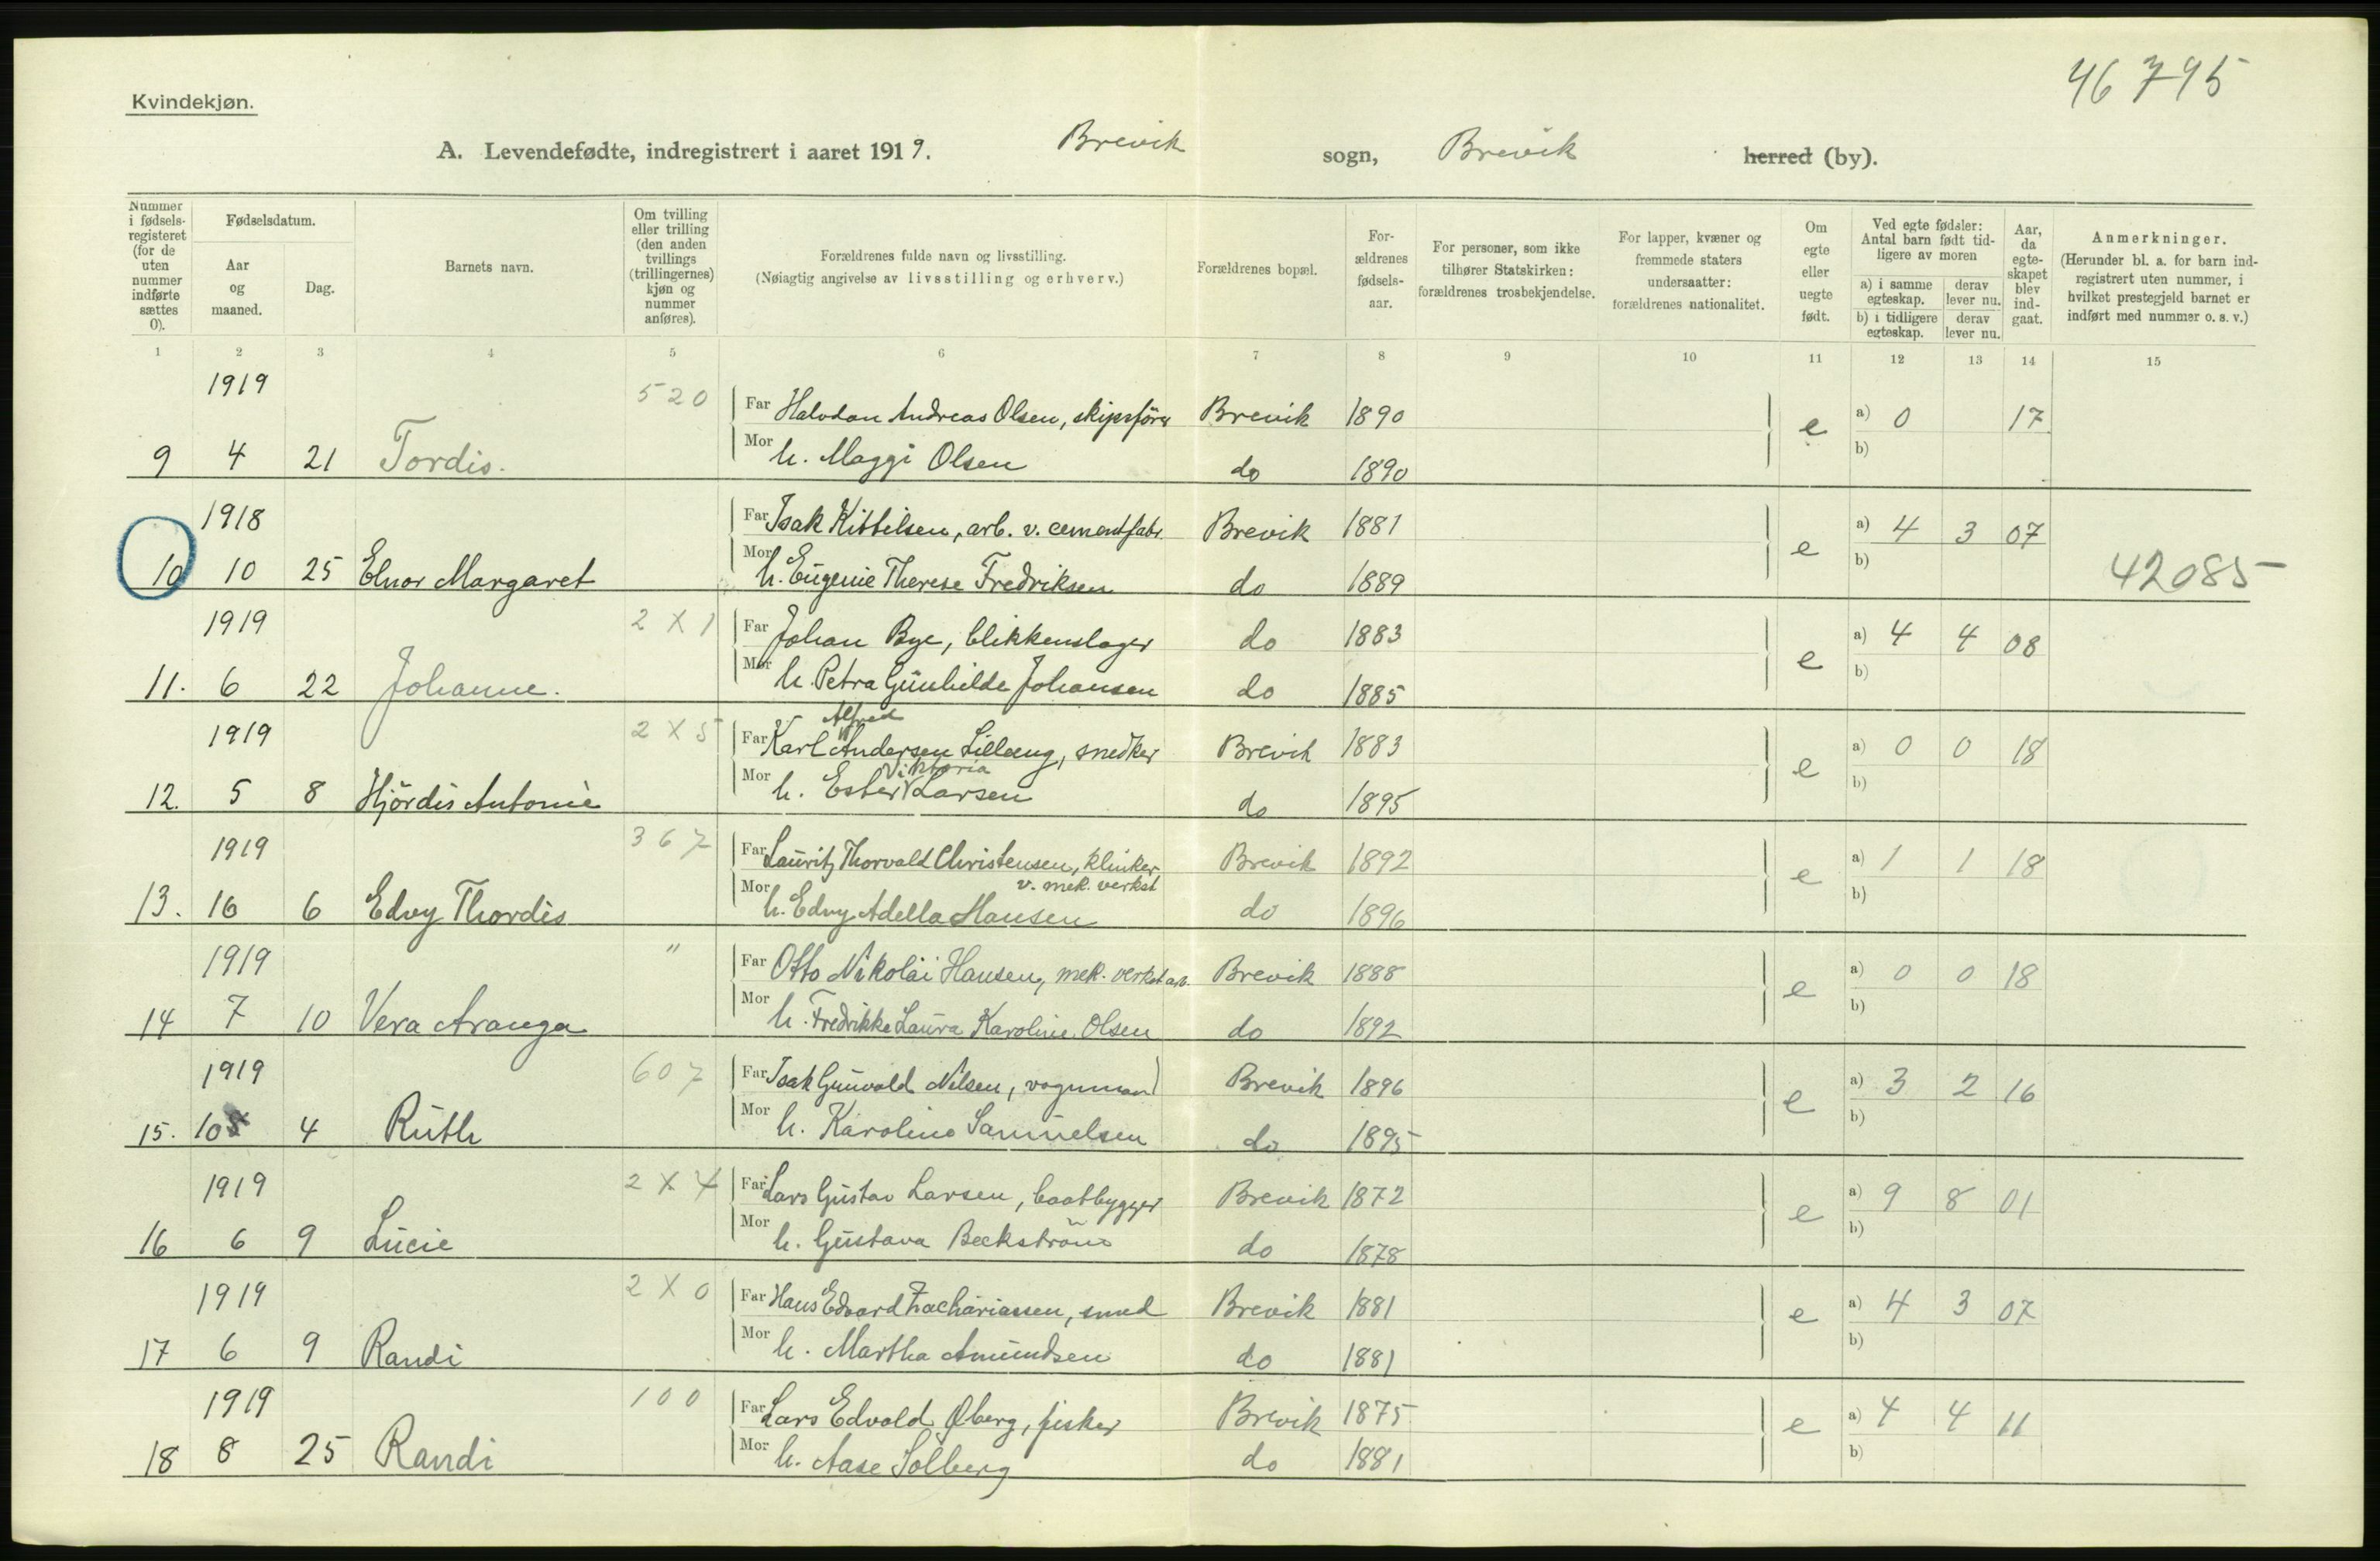 46 795
Kvindekjøn.
A. Levendefødte, indregistrert i aaret 1919. Brevik sogn, Brevik herred (by).
Nummer i fødsels-registeret (for de uten nummer indførte sættes 0).
Fødselsdatum.
Aar og maaned.
Dag.
Barnets navn.
Om tvilling eller trilling (den anden tvillings (trillingernes) kjøn og nummer anføres).
Forældrenes fulde navn og livsstilling.
(Nøiagtig angivelse av livsstilling og erhverv.)
Forældrenes bopæl.
For-ældrenes fødsels-aar.
For personer, som ikke tilhører Statskirken: forældrenes trosbekjendelse.
For lapper, kvæner og fremmede staters undersaatter: forældrenes nationalitet.
Om egte eller uegte født.
Ved egte fødsler: Antal barn født tid-ligere av moren
a) i samme egteskap. derav lever nu.
b) i tidligere egteskap. derav lever nu.
Aar, da egte-skapet blev ind-gaat.
Anmerkninger.
(Herunder bl. a. for barn ind-registrert uten nummer, i hvilket prestegjeld barnet er indført med nummer o. s. v.)
1 2 3 4 5 6 7 8 9 10 11 12 13 14 15
1919 520 Far Halvdan Andreas Olsen, skipsfører Brevik 1890 e a) 0 17
9 4 21 Tordis. Mor h. Maggi Olsen do 1890 b)
1918 Far Isak Kittilsen, arb. v. cementfabr. Brevik 1881 e a) 4 3 07
10 10 25 Elnor Margaret Mor h. Eugenie Therese Fredriksen do 1889 b) 42085
1919 2 X 1 Far Johan Bye, blikkenslager do 1883 e a) 4 4 08
11. 6 22 Johanne. Mor h. Petra Gunhilde Johansen do 1885 b)
Alfred
1919 2 X 5 Far Karl Andersen Lilleeng, snedker Brevik 1883 e a) 0 0 18
Viktoria
12. 5 8 Hjördis Antonie Mor h. Ester Larsen do 1895 b)
1919 367 Far Lauritz Thorvald Christensen, klinker, Brevik 1892 e a) 1 1 18
v. mek. verkst
13. 16 6 Edvy Thordis Mor h. Edvy Adella Hansen do 1896 b)
1919 " Far Otto Nikolai Hansen, mek. verkst arb. Brevik 1888 e a) 0 0 18
14 7 10 Vera Aranga Mor h. Fredrikke Laura Karoline Olsen do 1892 b)
1919 607 Far Isak Gunvald Nilsen, vognmand Brevik 1896 e a) 3 2 16
15. 10 4 Ruth Mor h. Karoline Samuelsen do 1895 b)
1919 2 X 4 Far Lars Gustav Larsen, baatbygger Brevik 1872 e a) 9 8 01
16 6 9 Lucie Mor h. Gustava Beckström do 1878 b)
1919 2 X 0 Far Hans Edvard Zachariassen, smed Brevik 1881 e a) 4 3 07
17 6 9 Randi Mor h. Martha Amundsen do 1881 b)
1919 100 Far Lars Edvald Øberg, fisker Brevik 1875 e a) 4 4 11
18 8 25 Randi Mor h. Aase Solberg do 1881 b)